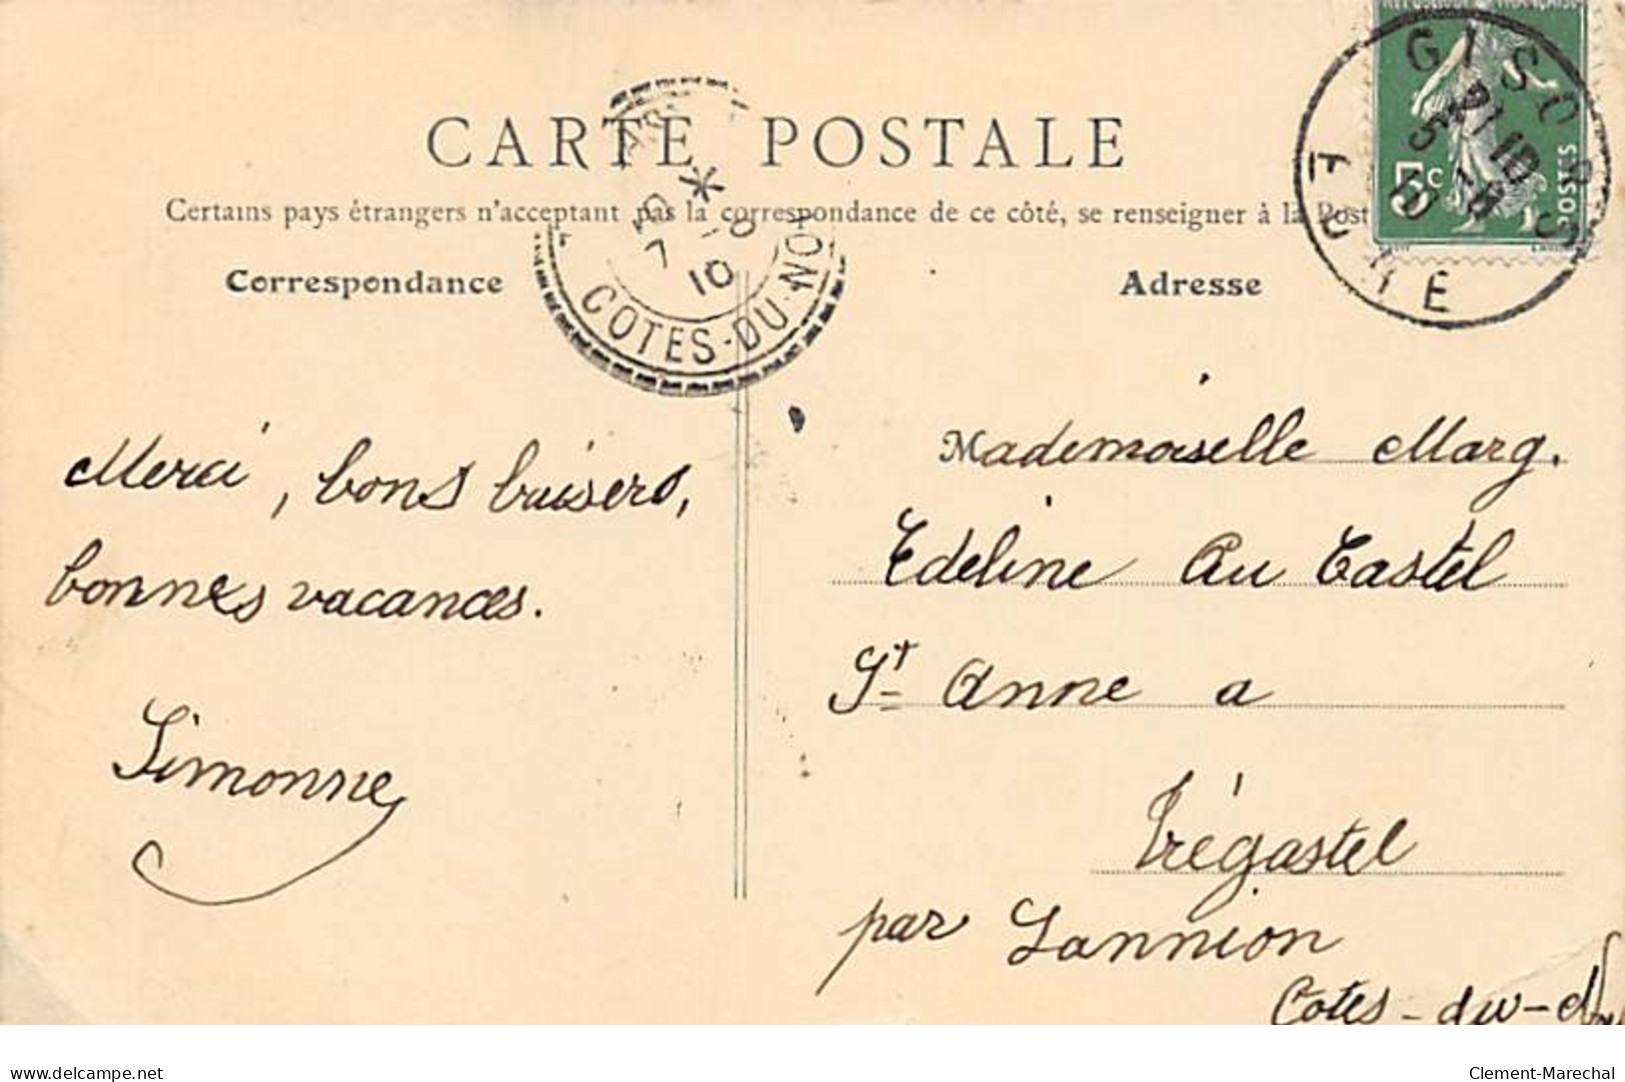 RÉPUBLIQUE FRANÇAISE
GISORS
21 10
5 10
EURE
5c
POSTES
CARTE POSTALE
Certains pays étrangers n'acceptent pas la correspondance de ce côté, se renseigner à la Post
7 10
10
COTES-DU-NO
Correspondance
Adresse
Merci, bons baisers,
bonnes vacances.
Simonne
Mademoiselle Marg.
Edeline Au Castel
St Anne a
Trégastel
par Lannion
Cotes-du-Nord
delcampe.net
Clement-Marechal